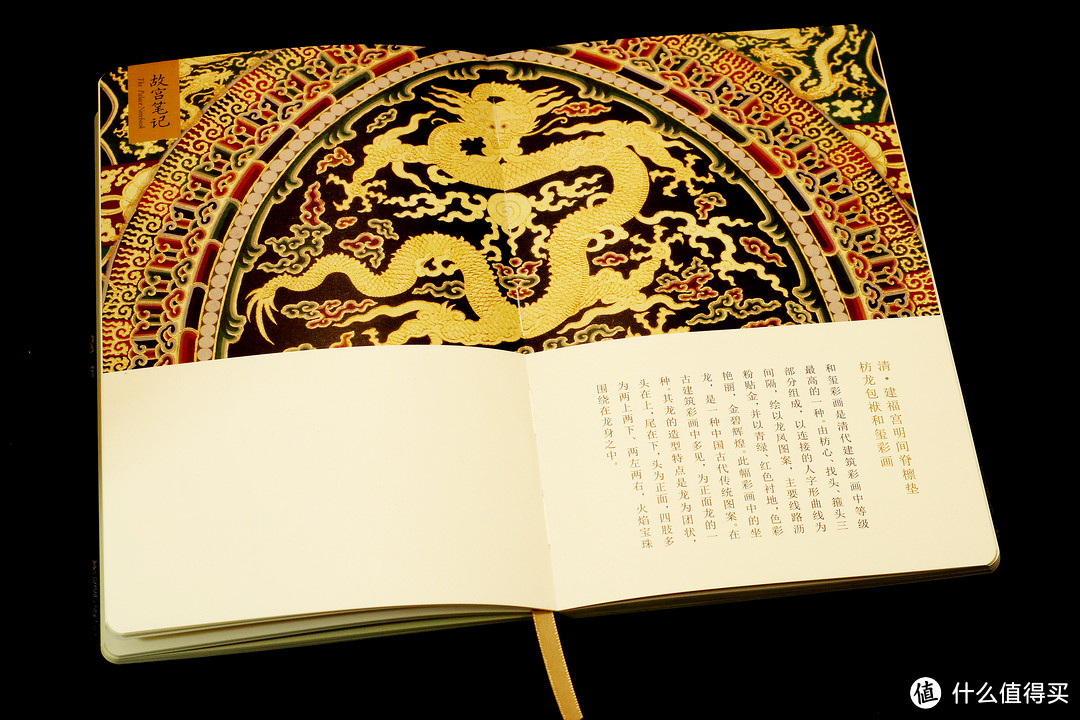 故宫笔记
The Palace Notebook
清·建福宫明间脊檩垫
枋龙包袱和玺彩画
和玺彩画是清代建筑彩画中等级
最高的一种。由枋心、找头、箍头三
部分组成，以连接的人字形曲线为
间隔，绘以龙凤图案，主要线路沥
粉贴金，并以青绿、红色衬地，色彩
艳丽，金碧辉煌。此幅彩画中的坐
龙，是一种中国古代传统图案。在
古建筑彩画中多见，为正面龙的一
种，其龙的造型特点是龙为团状，
头在上，尾在下，头为正面，四肢多
为两上两下、两左两右，火焰宝珠
围绕在龙身之中。
值 什么值得买